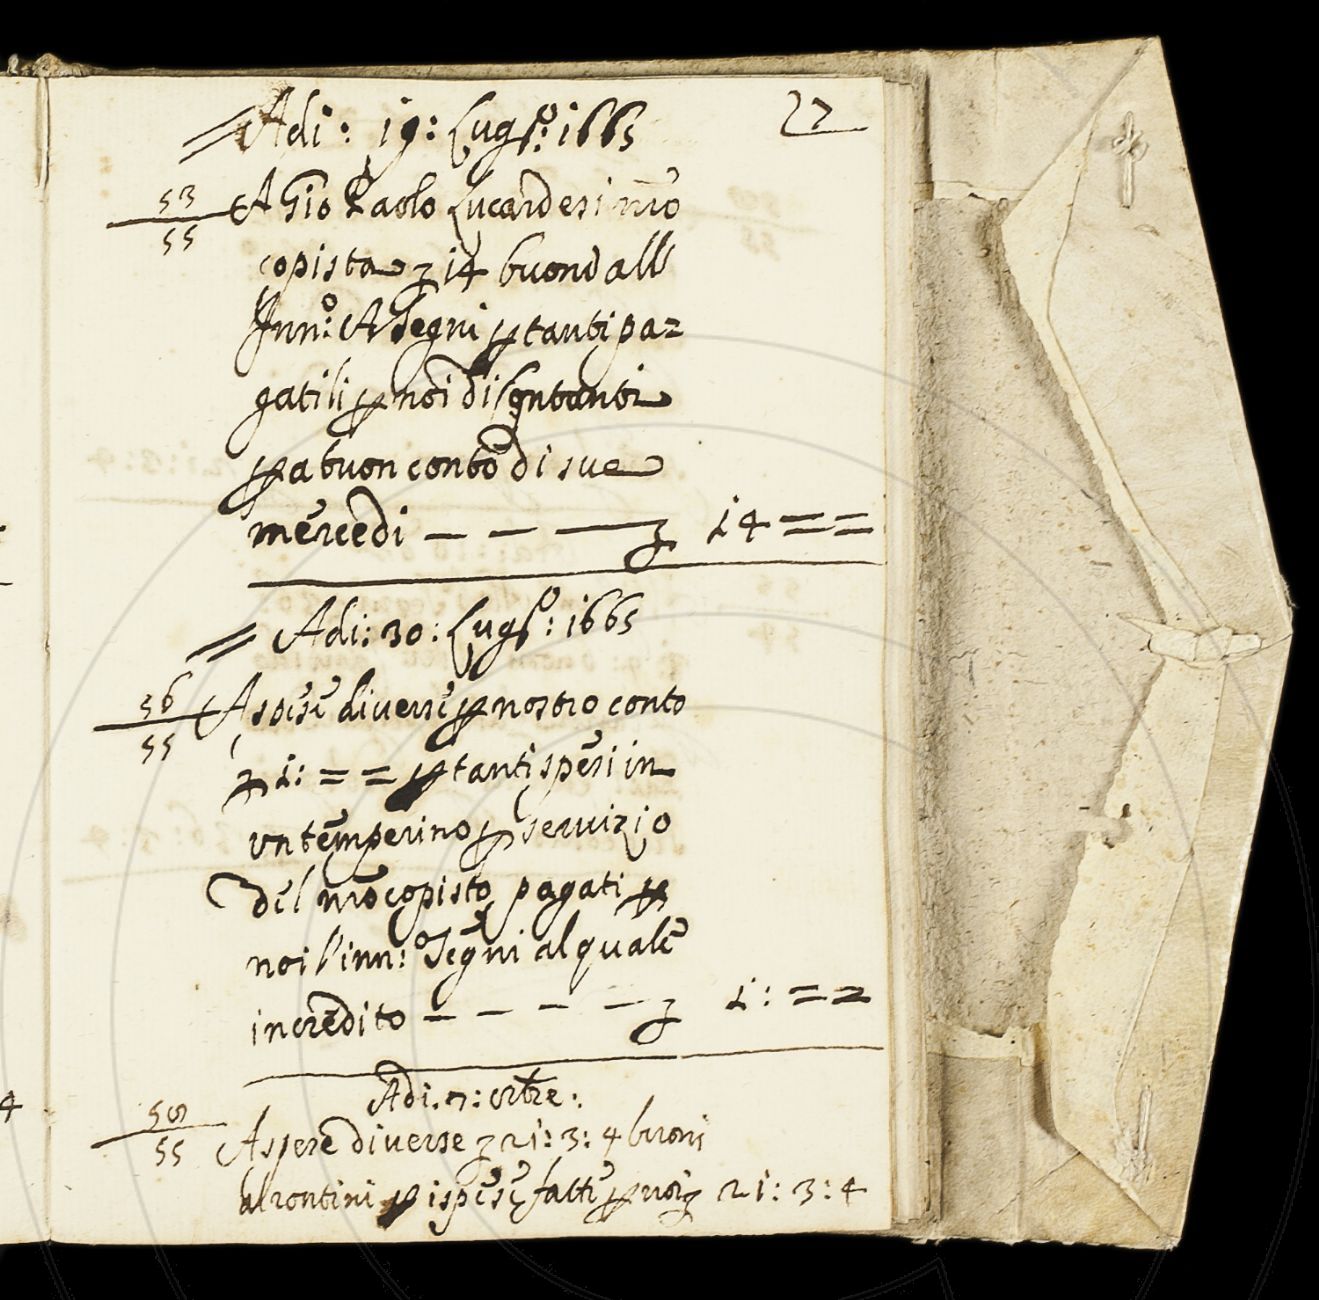 27
Adi: 19: Lugl°: 1665
53
55
A Gio Paolo Lucardesi nro
copista 14 buoni all
Inn:° A Segni p tanti pa=
gatili p noi di Contanti
p a buon conto di sue
mercedi — — — 14 = =
Adi: 30: Lugl°: 1665
36
55
A spese diverse p nostro conto
1: = = p tanti spesi in
un temperino p servizio
del nro copisto pagati p
noi l'inn: Segni al quale
in credito — — — — 1: = =
Adi. 7: 8tre.
55
A spese diverse 21: 3: 4 buoni
al rontini p ispese fatte p noi 21: 3: 4
4